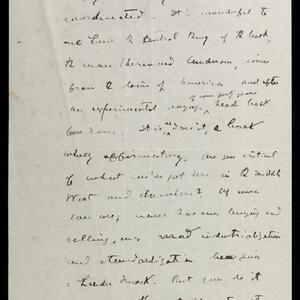 coordinated. It's wonderful to
me how the central thing of the book,
the man Sherwood Anderson, comes
from the loins of America and after
an experimental voyage of some forty years head back
for home. It is, isn't it, a book
wholly affirmatory. Are you critical
of what we've got here in the Middle
West and elsewhere? Of course
you are; never has our buying and
selling, our industrialization
and standardization been given
a harder knock. But you do it